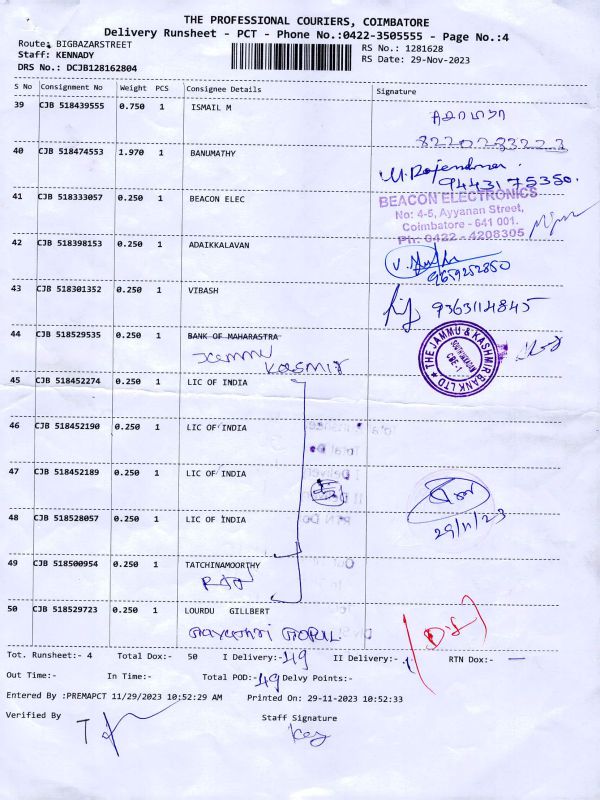 THE PROFESSIONAL COURIERS, COIMBATORE
Delivery Runsheet - PCT - Phone No.:0422-3505555 - Page No.:4
Route: BIGBAZARSTREET
RS No.: 1281628
Staff: KENNADY
RS Date: 29-Nov-2023
DRS No.: DCJB128162804
S No Consignment No Weight PCS Consignee Details Signature
39 CJB 518439555 0.750 1 ISMAIL M
8220283223
40 CJB 518474553 1.970 1 BANUMATHY M. Rajendran.
9443175350.
41 CJB 518333057 0.250 1 BEACON ELEC BEACON ELECTRONICS
No: 4-5, Ayyanan Street,
Coimbatore - 641 001.
Ph: 0422 - 4208305
42 CJB 518398153 0.250 1 ADAIKKALAVAN
9659252850
43 CJB 518301352 0.250 1 VIBASH 9363114845
44 CJB 518529535 0.250 1 BANK OF MAHARASTRA THE JAMMU & KASHMIR BANK LTD
Jammu
Kasmir
CBE-1
45 CJB 518452274 0.250 1 LIC OF INDIA
46 CJB 518452190 0.250 1 LIC OF INDIA
47 CJB 518452189 0.250 1 LIC OF INDIA
48 CJB 518528057 0.250 1 LIC OF INDIA
29/11/23
49 CJB 518500954 0.250 1 TATCHINAMOORTHY
50 CJB 518529723 0.250 1 LOURDU GILLBERT
Tot. Runsheet:- 4 Total Dox:- 50 I Delivery:- 49 II Delivery:- RTN Dox:- —
Out Time:- In Time:- Total POD:- 49 Delvy Points:-
Entered By :PREMAPCT 11/29/2023 10:52:29 AM Printed On: 29-11-2023 10:52:33
Verified By Staff Signature